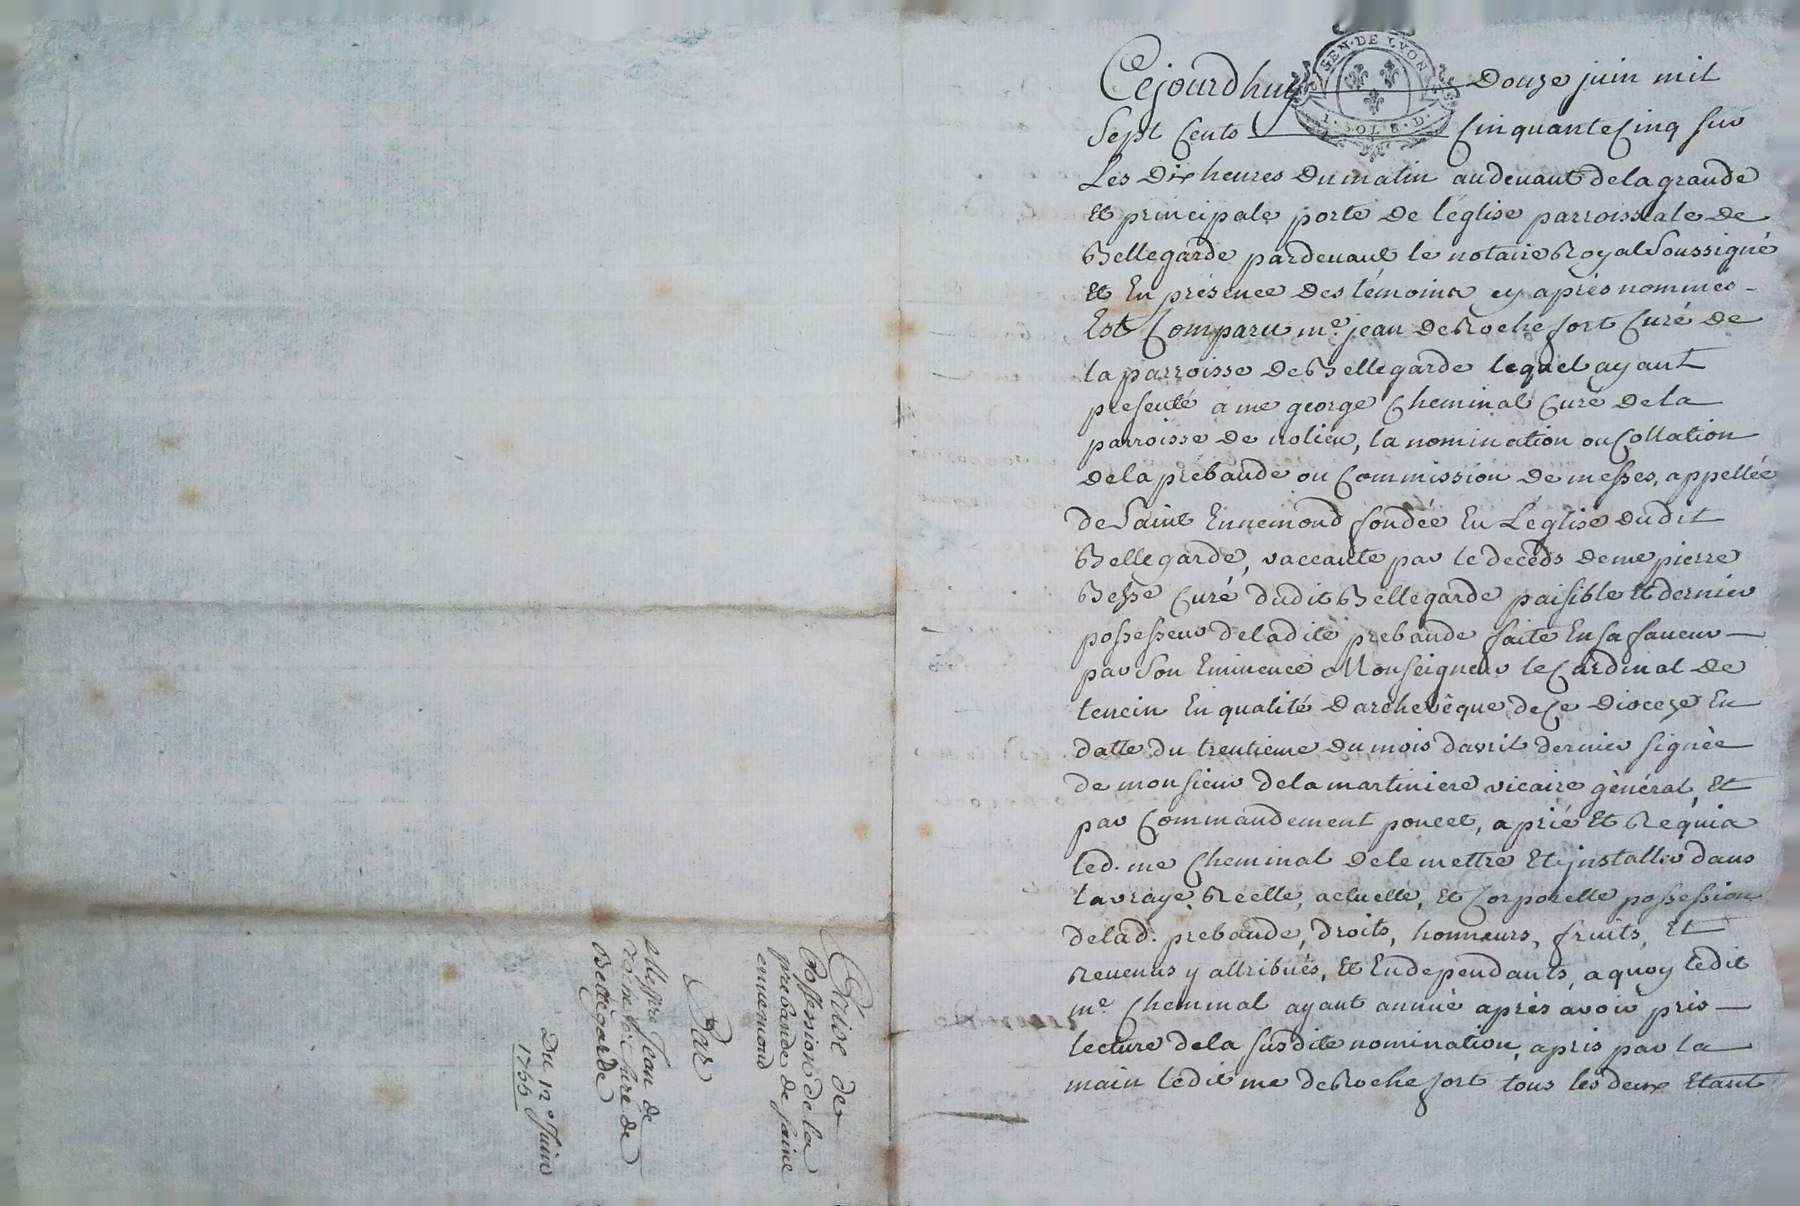 GEN. DE LYON
1. SOL. 8. D.
Cejourdhuy Douze juin mil
Sept Cents Cinquante Cinq sur
Les Dix heures Du matin audevant delagrande
Et principale porte De léglise parroissiale De
Bellegarde pardevant le notaire Royal Soussigné
Et En présence Des témoins cy après nommés
Est Comparu me. jean DeRochefort Curé De
la parroisse De Bellegarde lequel ayant
presenté a me george Cheminal Curé Dela
parroisse De nolieu, la nomination ou Collation
Dela prébande ou Commission De messes, appellée
de Saint Ennemond fondée En L'église dudit
Bellegarde, vaccante par le deceds deme pierre
Besse Curé dudit Bellegarde paisible Et dernier
possesseur deladite prebande faite En sa faveur
par Son Eminence Monseigneur le Cardinal De
tencin En qualité D'archevêque de Ce Dioceze En
datte du trentieme du mois d'avril dernier signée
de monsieur dela martiniere vicaire général, Et
par Commandement poncet, a prié Et Requis
led. me Cheminal dele mettre Et jnstaller dans
la vraye, Réelle, actuelle, Et Corporelle possession
delad. prebande, droits, honneurs, fruits, Et
Revenus y attribués, Et Endependants, a quoy ledit
me. Cheminal ayant annué après avoir pris
lecture dela susdite nomination, a pris par la
main ledit me deRochefort tous les deux Etant
Prise de
Possession de la
prebande de saint
ennemond
Par
Messire Jean de
Curé de
Bellegarde
Du 12e Juin
1755